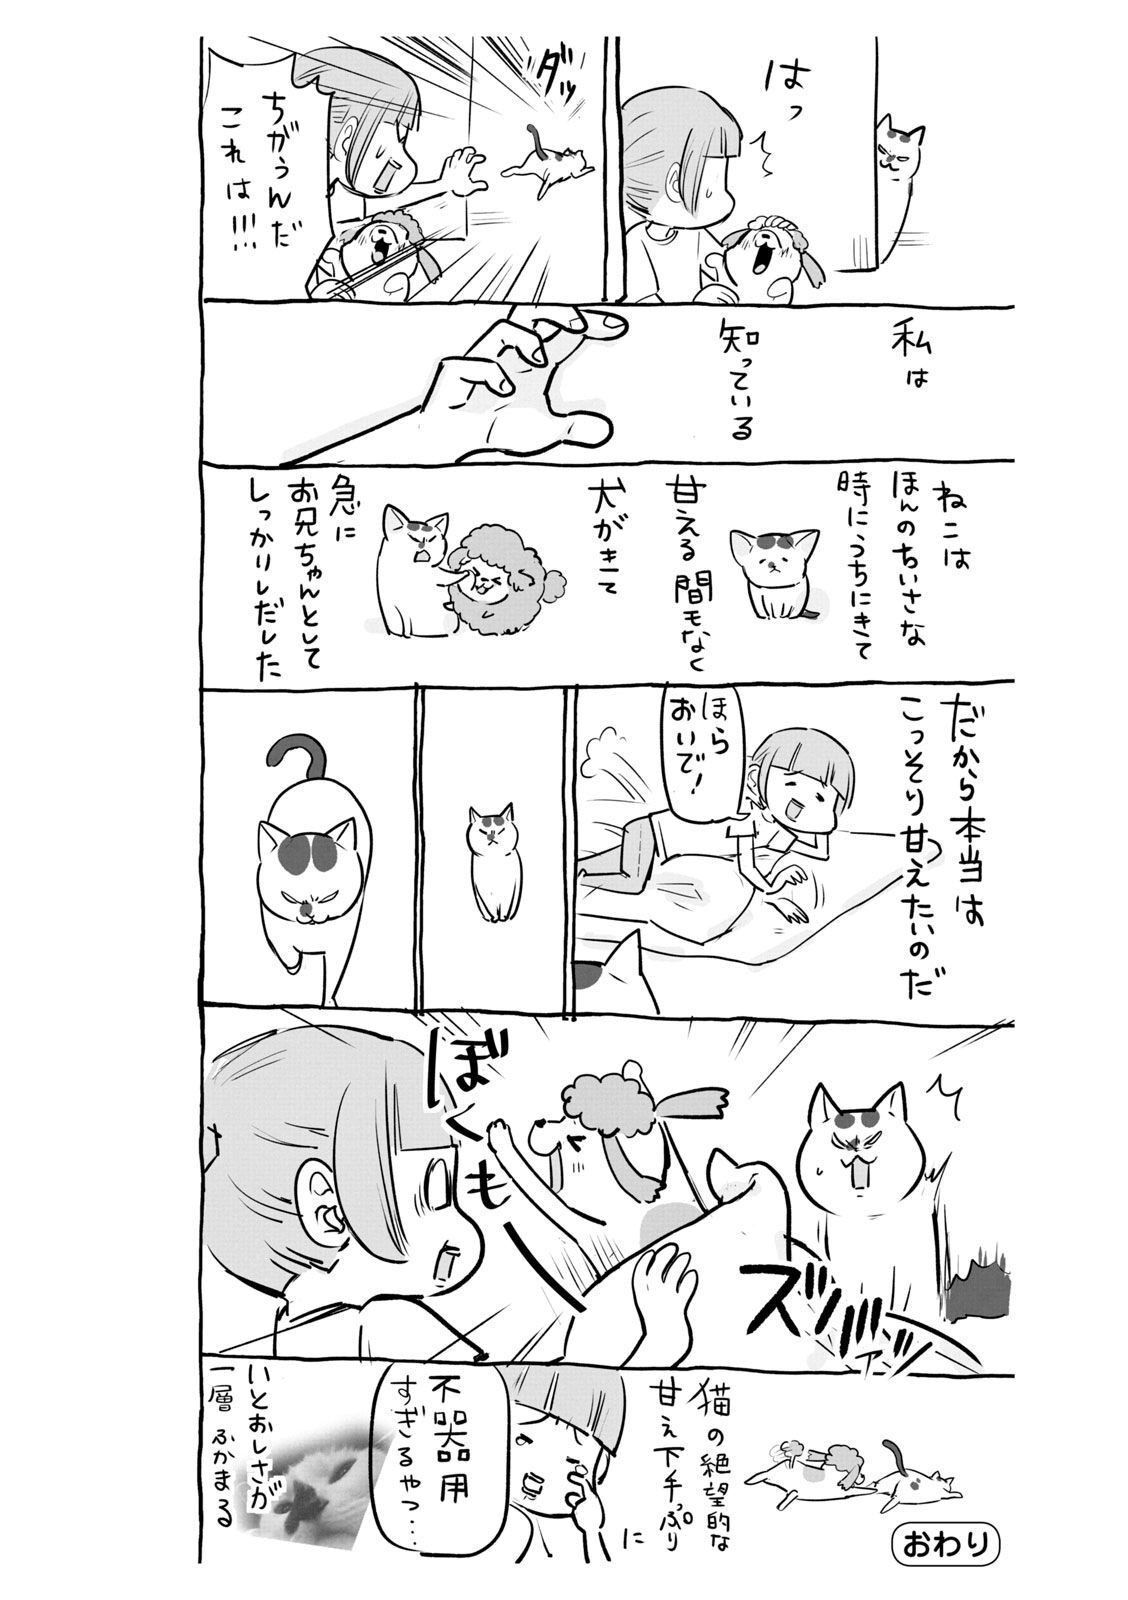 はっ
ダッ
ちがうんだ
これは!!!
私は
知っている
ねこは
ほんのちいさな
時にうちにきて
甘える間もなく
犬がきて
急に
お兄ちゃんとして
しっかりしだした
だから本当は
こっそり甘えたいのだ
ほら
おいで!
ぼくもー
ズババッ
猫の絶望的な
甘え下手っぷり
に
不器用
すぎるやつ…
いとおしさが
一層ふかまる
おわり